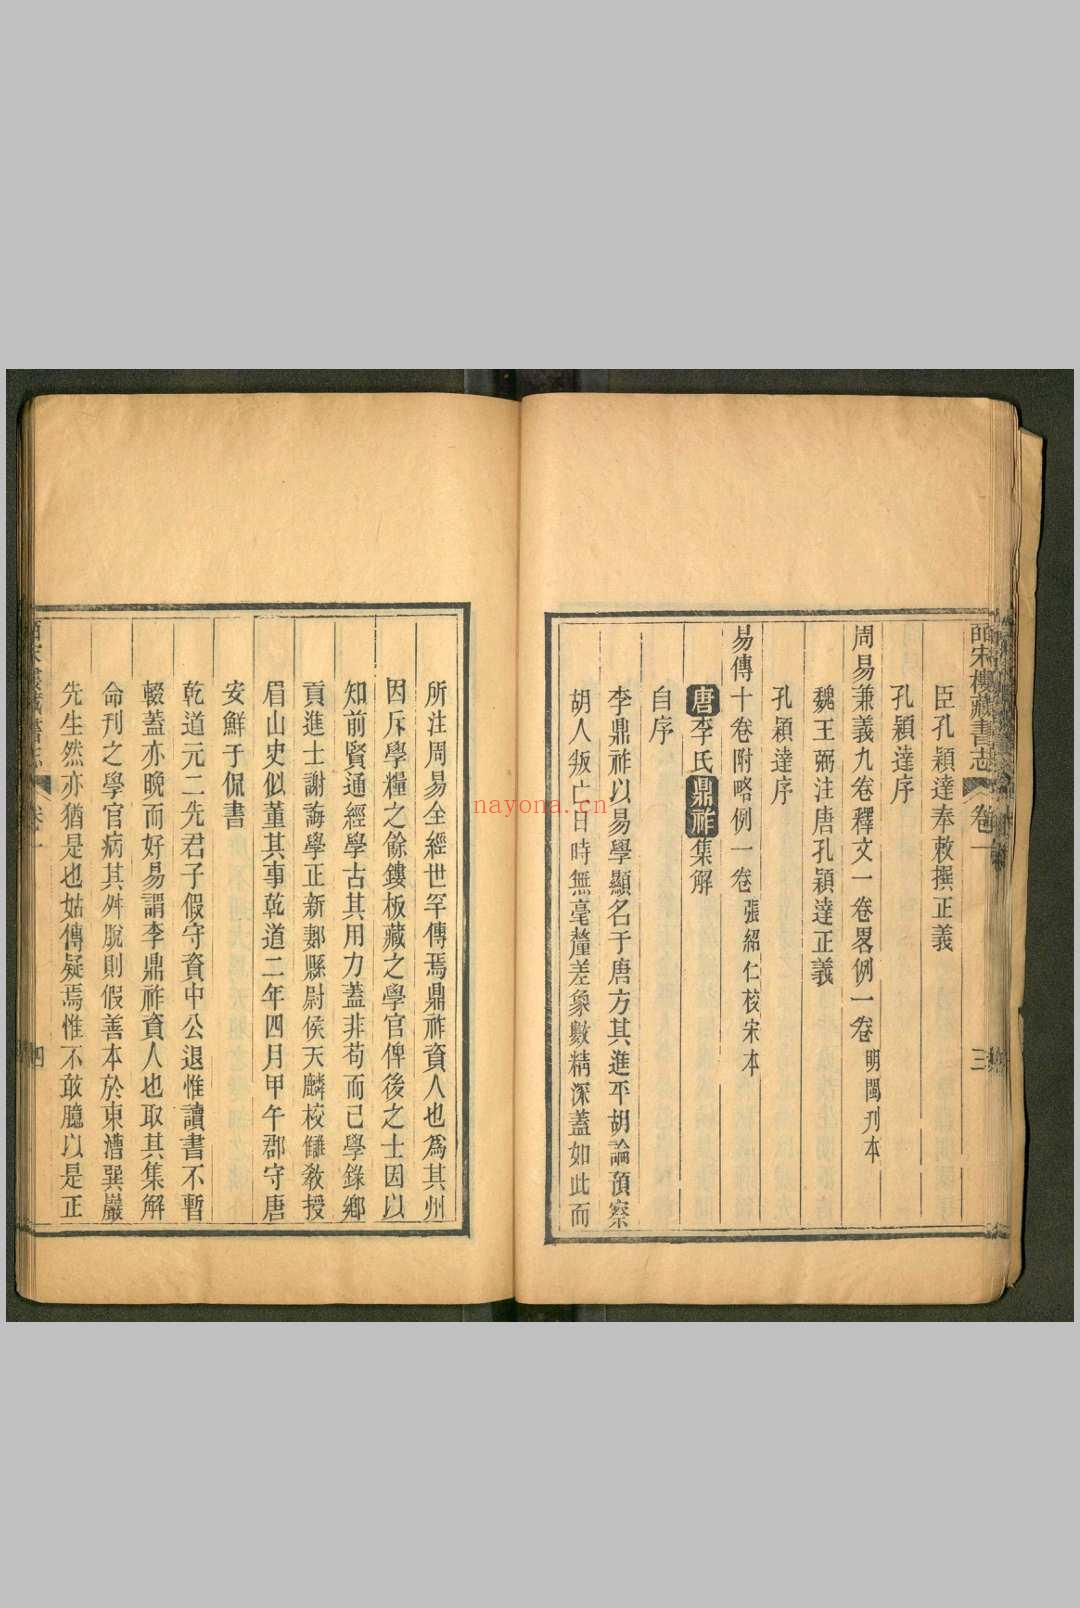 皕宋樓藏書志 卷一 三
臣孔穎達奉敕撰正義
孔穎達序
周易兼義九卷釋文一卷畧例一卷明閩刊本
魏王弼注唐孔穎達正義
孔穎達序
易傳十卷附略例一卷張紹仁校宋本
唐李氏鼎祚集解
自序
李鼎祚以易學顯名于唐方其進平胡論預察
胡人叛亡日時無毫釐差象數精深蓋如此而
所注周易全經世罕傳焉鼎祚資人也爲其州
因斥學糧之餘鏤板藏之學官俾後之士因以
知前賢通經學古其用力蓋非苟而已學錄鄉
貢進士謝誨學正新鄴縣尉侯天麟校讎教授
眉山史似董其事乾道二年四月甲午郡守唐
安鮮于侃書
乾道元二先君子假守資中公退惟讀書不暫
輟蓋亦晚而好易謂李鼎祚資人也取其集解
命刊之學官病其舛脫則假善本於東漕巽巖
先生然亦猶是也姑傳疑焉惟不敢臆以是正
皕宋樓藏書志 卷一 四
nayona.cn